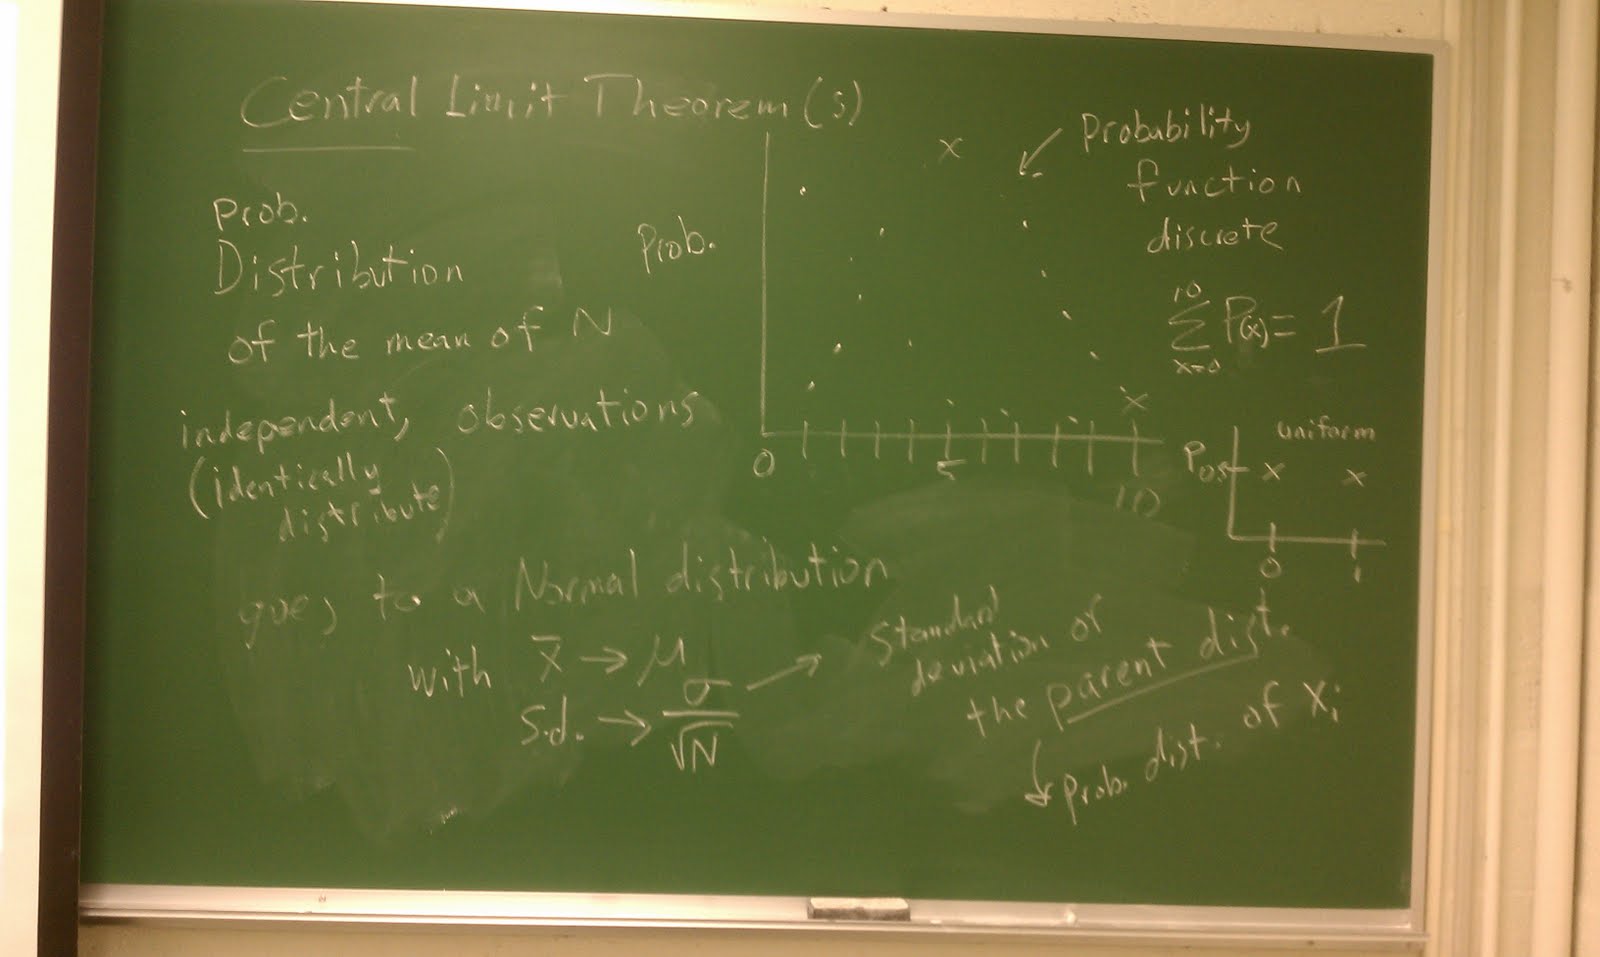 Central Limit Theorem(s)
Prob.
Distribution
of the mean of N
independent, observations
(identically
distribute)
goes to a Normal distribution
with x̄ → μ
s.d. → σ/√N
Standard
deviation of
the parent dist.
Prob. dist. of Xi
Prob.
0 5 10
x
x
Probability
function
discrete
10
∑ P(x) = 1
x=0
uniform
P 0.5 x x
0 1